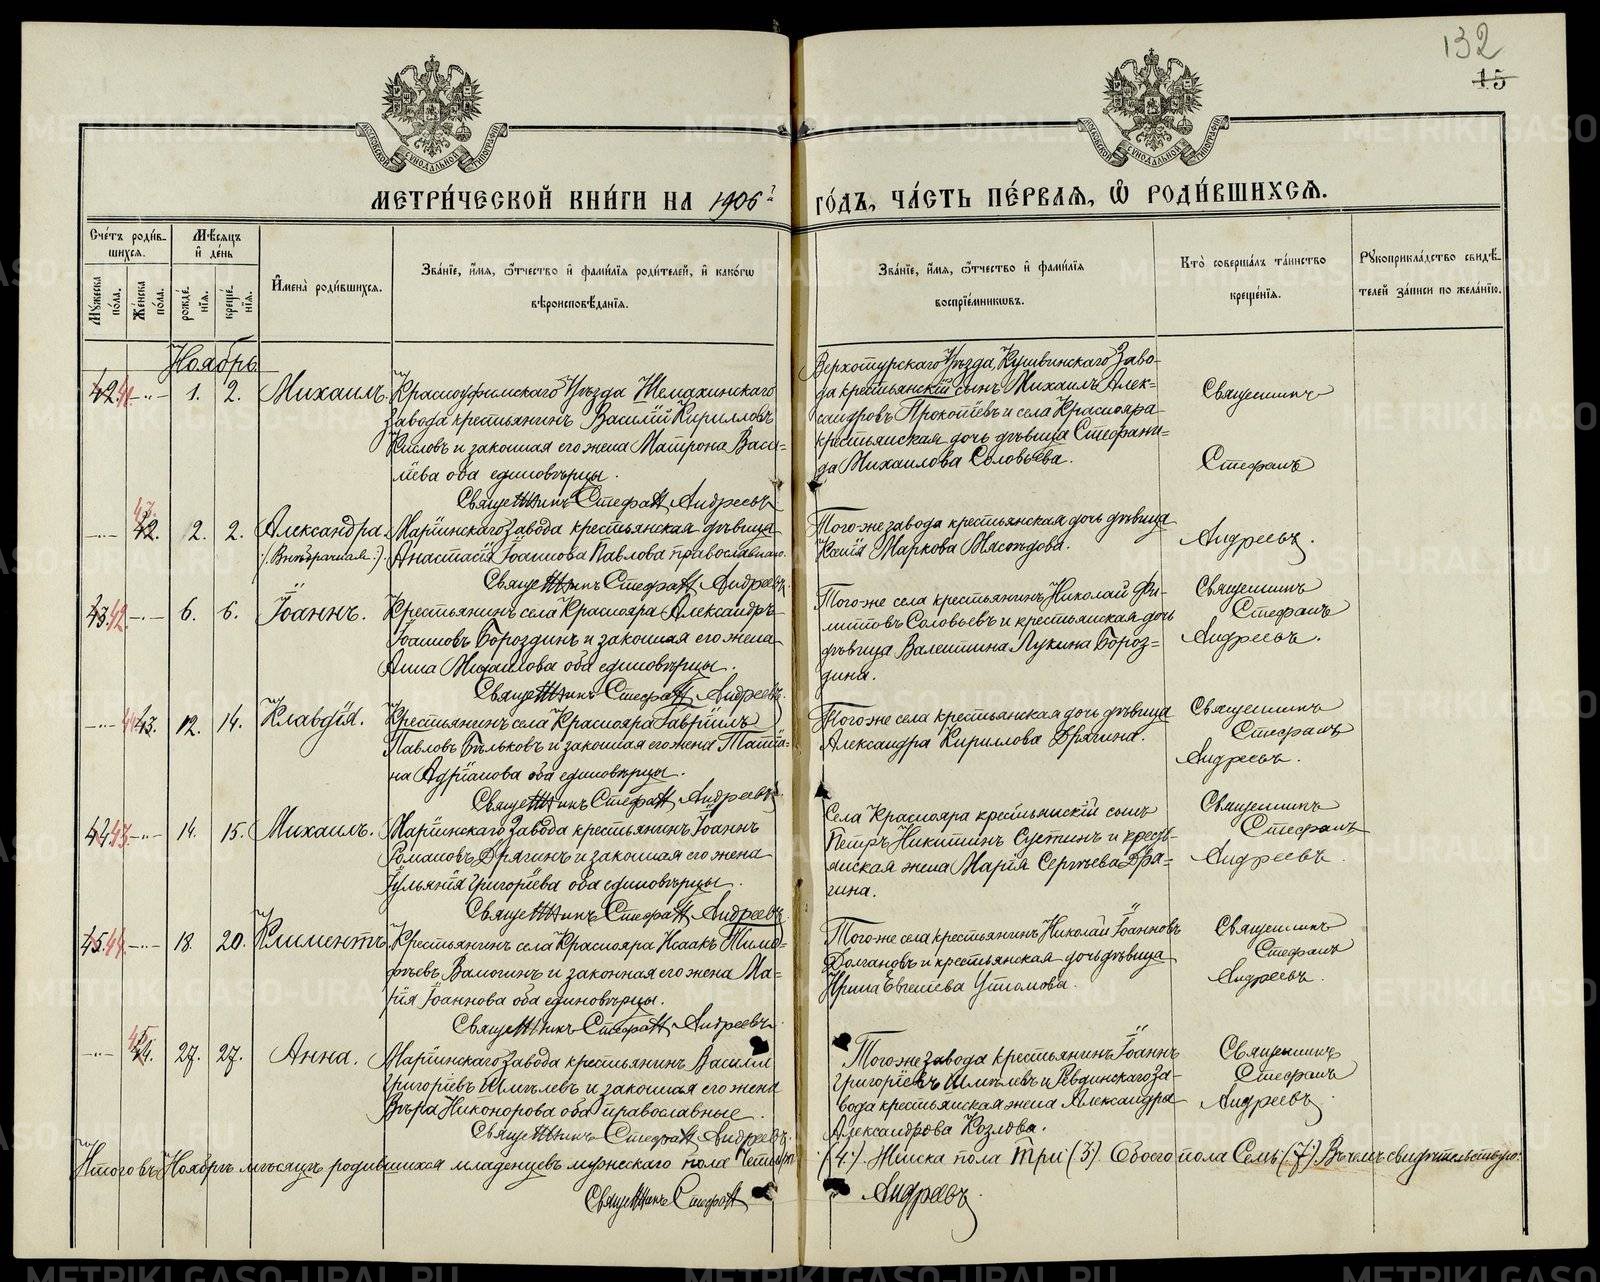 132
15
МОСКОВСКОЙ СУНОДАЛЬНОЙ ТИПОГРАФІИ
МОСКОВСКОЙ СУНОДАЛЬНОЙ ТИПОГРАФІИ
МЕТРИ́ЧЕСКОЙ КНИ́ГИ НА 1906 ГО́ДЪ, ЧА́СТЬ ПЕ́РВАѦ, Ѽ РОДИ́ВШИХСѦ.
Сче́тъ роди́в-
шихся.
Мѣ́сяцъ
и҆ де́нь
Мꙋ́жеска
по́ла.
Же́нска
по́ла.
рожде́-
нїя.
креще́-
нїя.
И҆мена̀ роди́вшихся.
Зва́нїе, и҆́мя, ѻ҆́тчество и҆ фами́лїя роди́телей, и҆ како́гѡ
вѣроисповѣ́данїя.
Зва́нїе, и҆́мя, ѻ҆́тчество и҆ фами́лїя
воспрїе́мникѡвъ.
Кто̀ соверша́лъ та́инство
креще́нїя.
Рꙋкоприкла́дство свидѣ́-
телей за́писи по жела́нїю.
Ноябрь
42 41 -"- 1. 2. Михаилъ.
Красноуфимскаго Уѣзда Шемахинскаго
завода крестьянинъ Василій Кирилловъ
и законная его жена Матрона Васи-
ліева оба единовѣрцы.
Священникъ Стефанъ Андреевъ
Верхотурскаго Уѣзда, Кушвинскаго Заво-
да крестьянскій сынъ Михаилъ Алек-
сандровъ Прокопіевъ и села Краснояра
крестьянская дочь дѣвица Стефани-
да Михаилова Соловьева.
Священникъ
Стефанъ
Андреевъ.
-"- 43. 42. 2. 2. Александра.
(Внѣбрачная.)
Маріинскаго завода крестьянская дѣвица
Анастасія Іоаннова Павлова православнаго.
Священникъ Стефанъ Андреевъ.
Того-же завода крестьянская дочь дѣвица
Маркова Мясоѣдова.
43 42 -"- 6. 6. Іоаннъ.
Крестьянинъ села Краснояра Александръ
Іоанновъ Бороздинъ и законная его жена
Анна Михаилова оба единовѣрцы.
Священникъ Стефанъ Андреевъ.
Того-же села крестьянинъ Николай Фи-
липповъ Соловьевъ и крестьянская дочь
дѣвица Валентина Лукина Бороз-
дина.
Священникъ
Стефанъ
Андреевъ.
-"- 44 43. 12. 14. Клавдія.
Крестьянинъ села Краснояра Гавріилъ
Павловъ Бѣльковъ и законная его жена Татіа-
на Адріанова оба единовѣрцы.
Священникъ Стефанъ Андреевъ
Того-же села крестьянская дочь дѣвица
Александра Кириллова Дрягина.
Священникъ
Стефанъ
Андреевъ.
44 43 -"- 14. 15. Михаилъ.
Маріинскаго завода крестьянинъ Іоаннъ
Романовъ Дрягинъ и законная его жена
Іуліанія Григоріева оба единовѣрцы.
Священникъ Стефанъ Андреевъ
Села Краснояра крестьянскій сынъ
Петръ Никитинъ Сустинъ и кресть-
янская жена Марія Сергѣева Дря-
гина.
Священникъ
Стефанъ
Андреевъ.
45. 44 -"- 18. 20. Климентъ.
Крестьянинъ села Краснояра Исаакъ Тимо-
фѣевъ Ваточинъ и законная его жена Ма-
рія Іоаннова оба единовѣрцы.
Священникъ Стефанъ Андреевъ.
Того-же села крестьянинъ Николай Іоанновъ
Долгановъ и крестьянская дочь дѣвица
Ирина Евгеніева Устюмова.
Священникъ
Стефанъ
Андреевъ.
-"- 45 44. 27. 27. Анна.
Маріинскаго завода крестьянинъ Василій
Григоріевъ Шмелевъ и законная его жена
Вѣра Никонорова оба православные.
Священникъ Стефанъ Андреевъ.
Того же завода крестьянинъ Іоаннъ
Григоріевъ Шмелевъ и Ревдинскаго за-
вода крестьянская жена Александра
Александрова Козлова.
Священникъ
Стефанъ
Андреевъ.
Итого въ Ноябрѣ мѣсяцѣ родившихся младенцевъ мужескаго пола Четыре (4). Женска пола Три (3). Обоего пола Семь (7). Въ чемъ свидѣтельствую:
Священникъ Стефанъ Андреевъ.
METRIKI.GASO-URAL.RU